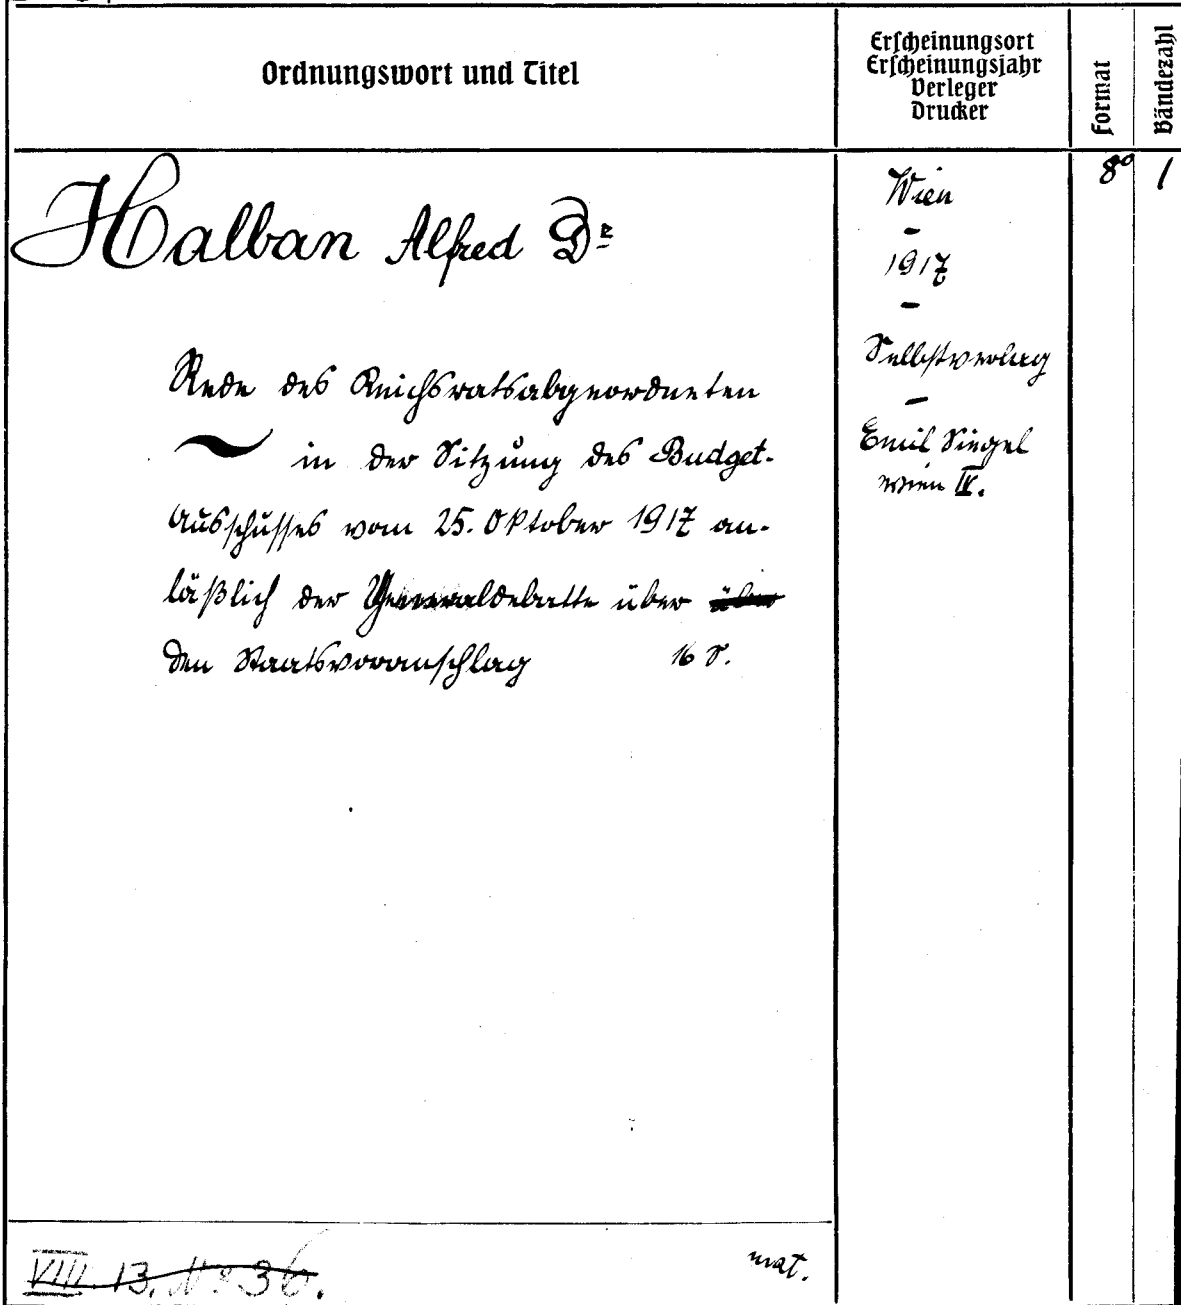 Ordnungswort und Titel
Erscheinungsort
Erscheinungsjahr
Verleger
Drucker
Format
Bändezahl
Halban Alfred Dr
Rede des Reichsratsabgeordneten
~ in der Sitzung des Budget-
Ausschusses vom 25. Oktober 1917 an-
läßlich der Generaldebatte über über
den Staatsvoranschlag 16 S.
Wien
-
1917
-
Selbstverlag
-
Emil Siegel
Wien IV.
8° 1
VIII 13. No 36.
mat.